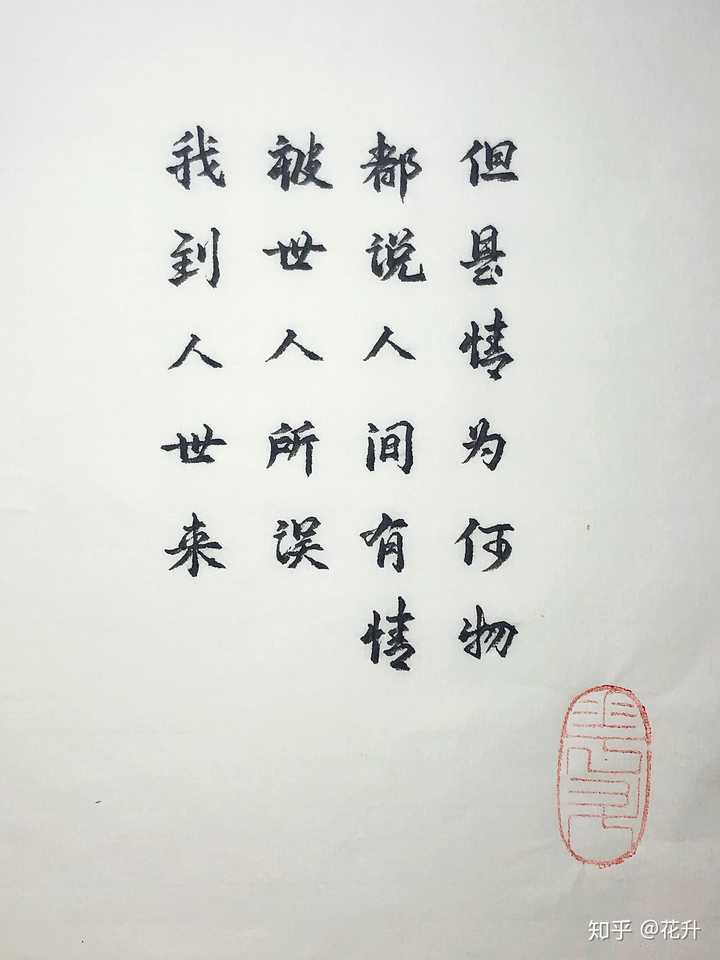 我到人世来
被世人所误
都说人间有情
但是情为何物
知乎 @花升